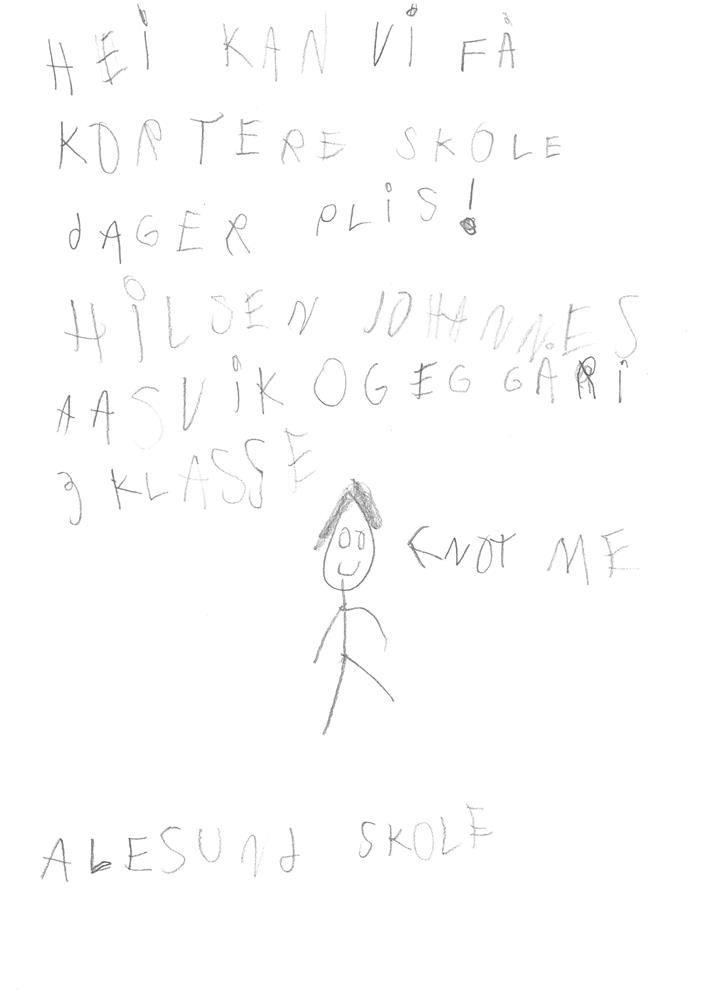 HEI KAN VI FÅ
KORTERE SKOLE
dAGER PLIS!
HILSEN JOHANNES
AASVIK OG EG GÅR I
3 KLASSE
< NOT ME
ALESUNd SKOLE